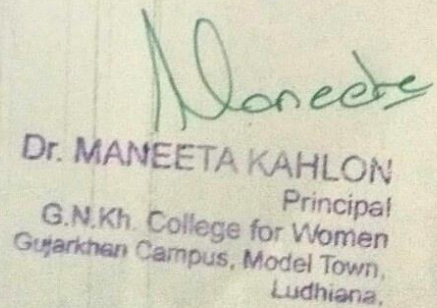 Maneeta
Dr. MANEETA KAHLON
Principal
G.N.Kh. College for Women
Gujarkhan Campus, Model Town,
Ludhiana.